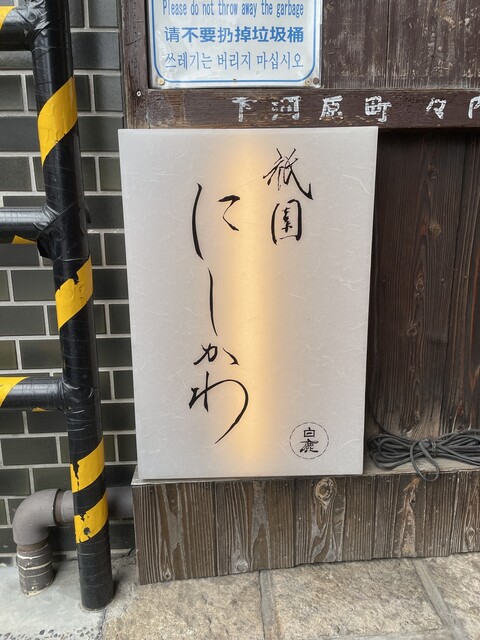 Please do not throw away the garbage
请不要扔掉垃圾桶
쓰레기는 버리지 마십시오
下河原町
祇園
にしかわ
白鹿